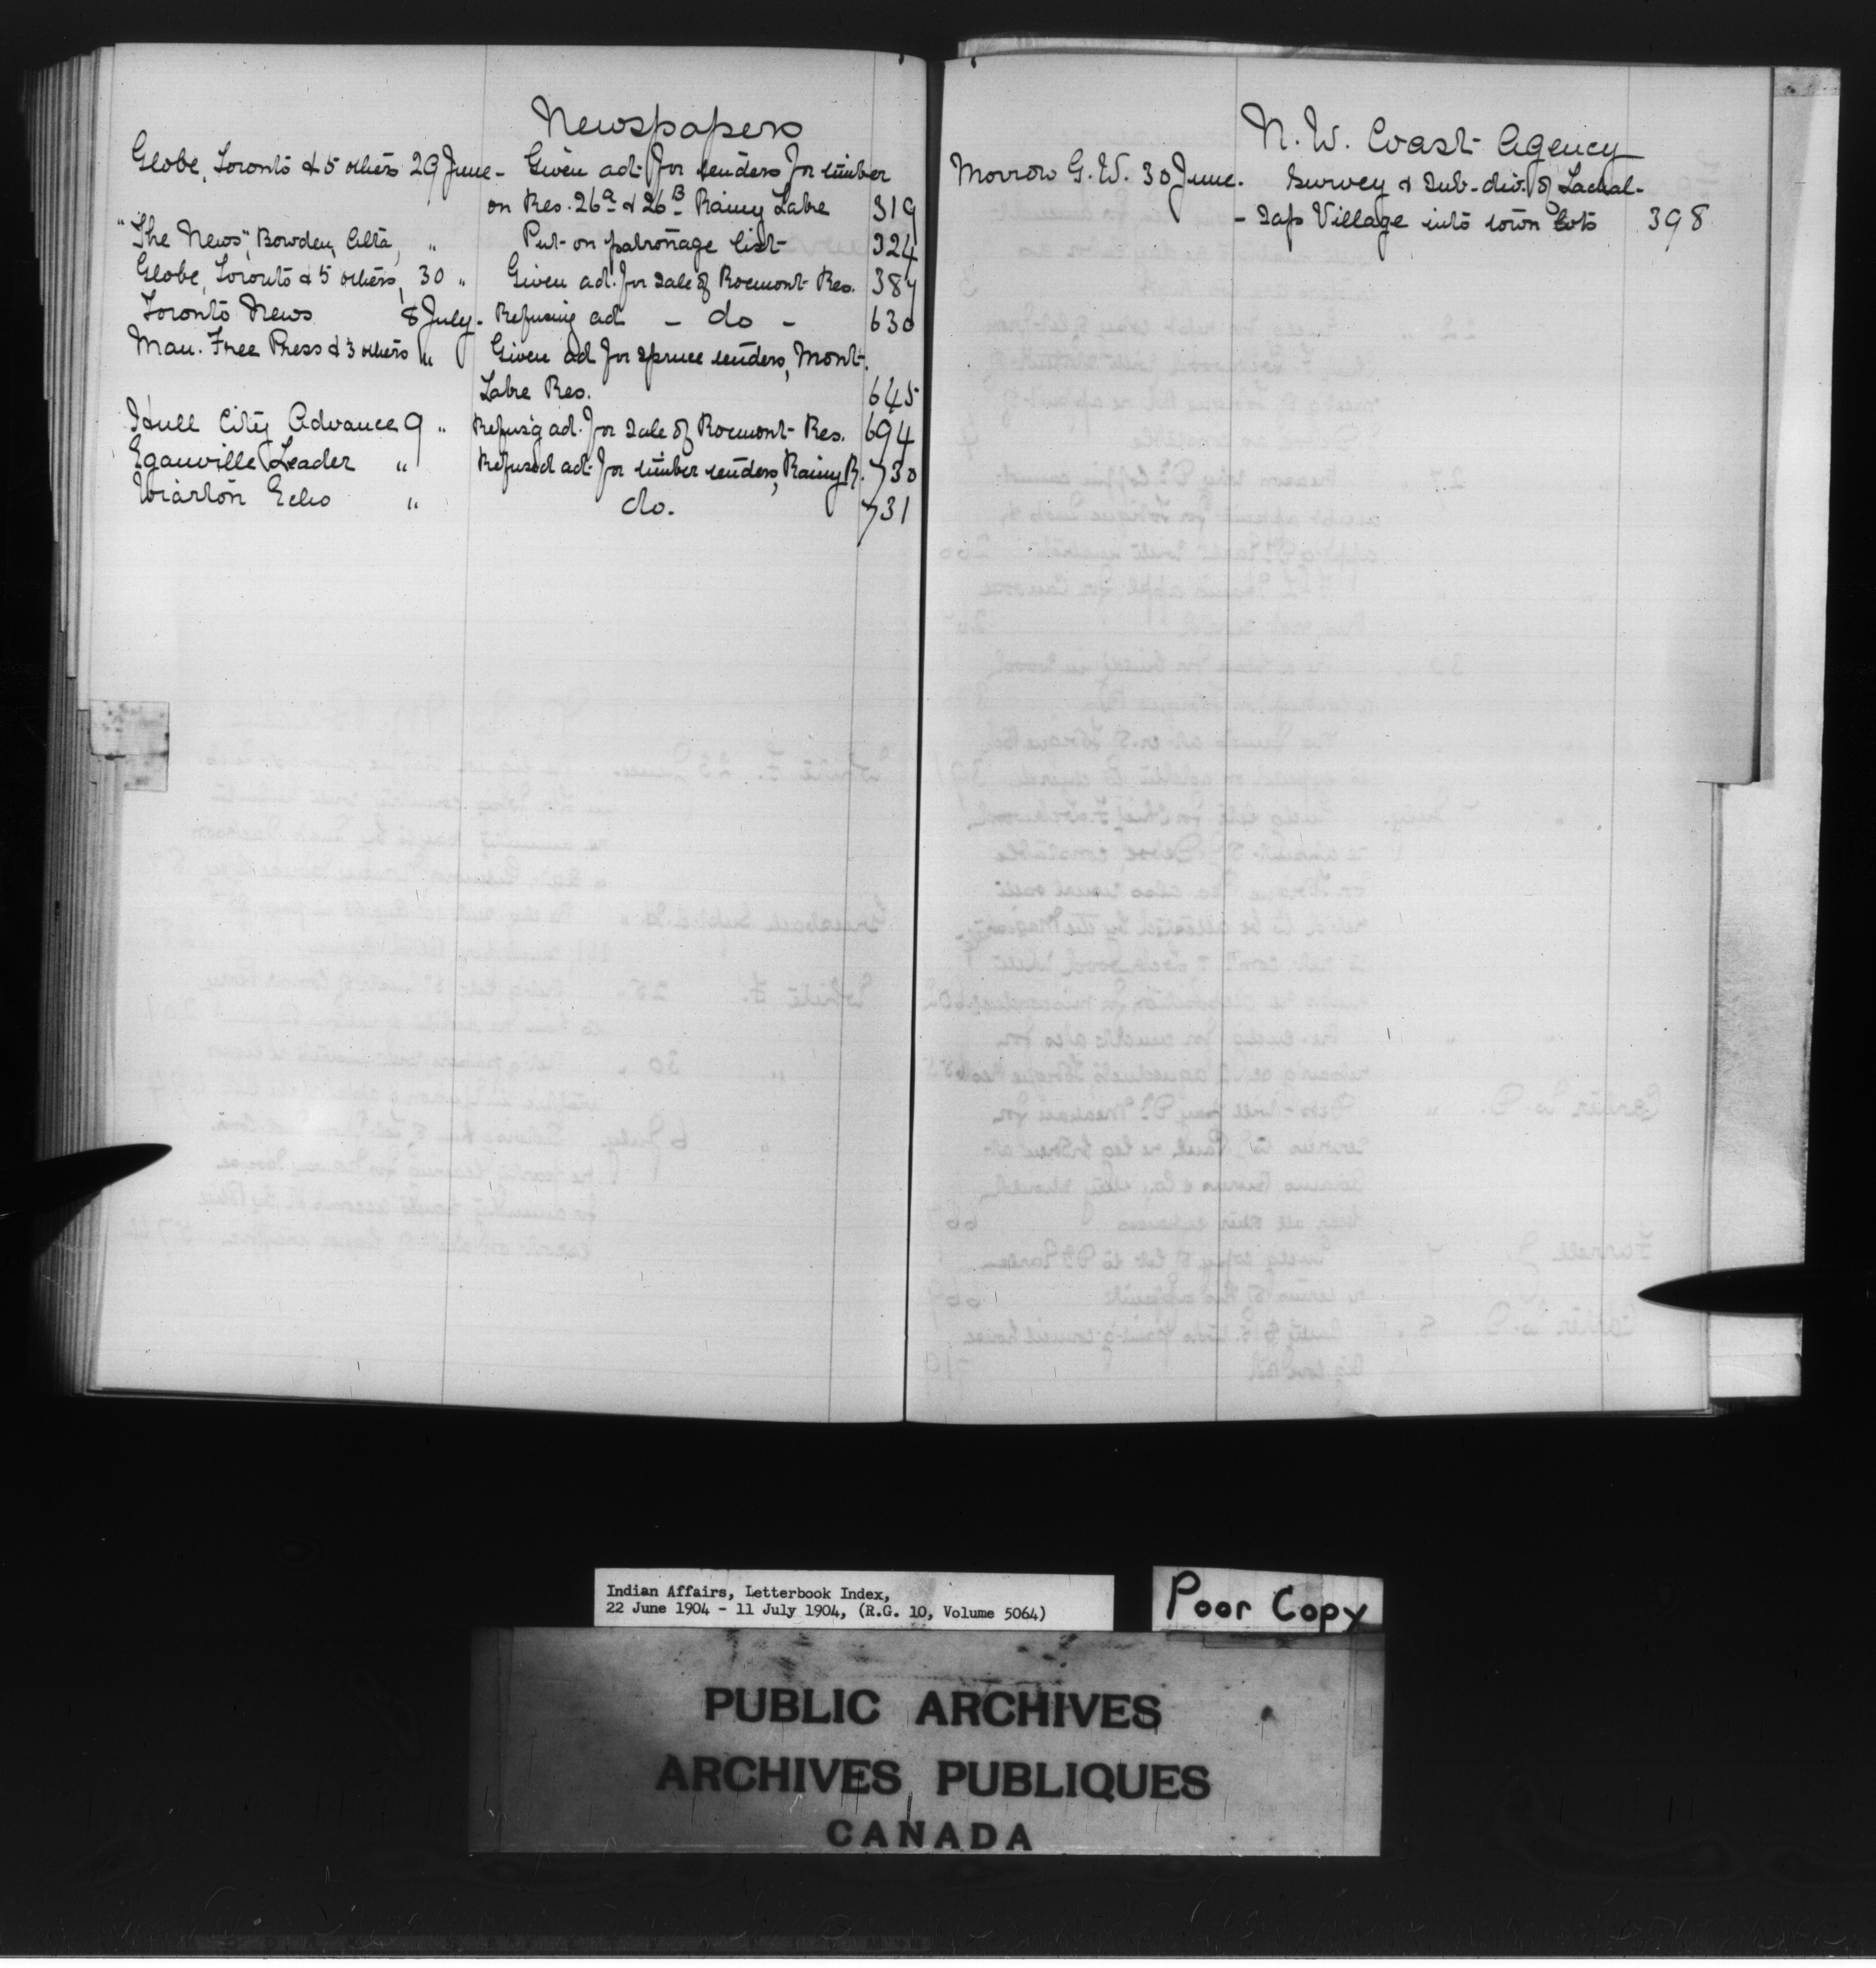 Newspapers
Globe, Toronto & 5 others 29 June - Given adt. for tenders for timber
on Res. 26a & 26B Rainy Lake 319
"The News", Bowden, Alta, " Put on patronage list 324
Globe, Toronto & 5 others, 30 " Given ad. for sale of Rocmont Res. 387
Toronto News 8 July. Refusing adt - do - 630
Man. Free Press & 3 others " Given adt for spruce tenders, Mont.
Lake Res. 645
Hull City Advance 9 " Refusg ad. for sale of Rocmont Res. 694
Eganville Leader " Refused adt for timber tenders, Rainy R. 730
Wiarton Echo " do. 731
N. W. Coast Agency
Morrow G. W. 30 June. Survey & Sub-div. of Lachal-
- Tap Village into town lots 398
Indian Affairs, Letterbook Index,
22 June 1904 - 11 July 1904, (R.G. 10, Volume 5064)
Poor Copy
PUBLIC ARCHIVES
ARCHIVES PUBLIQUES
CANADA